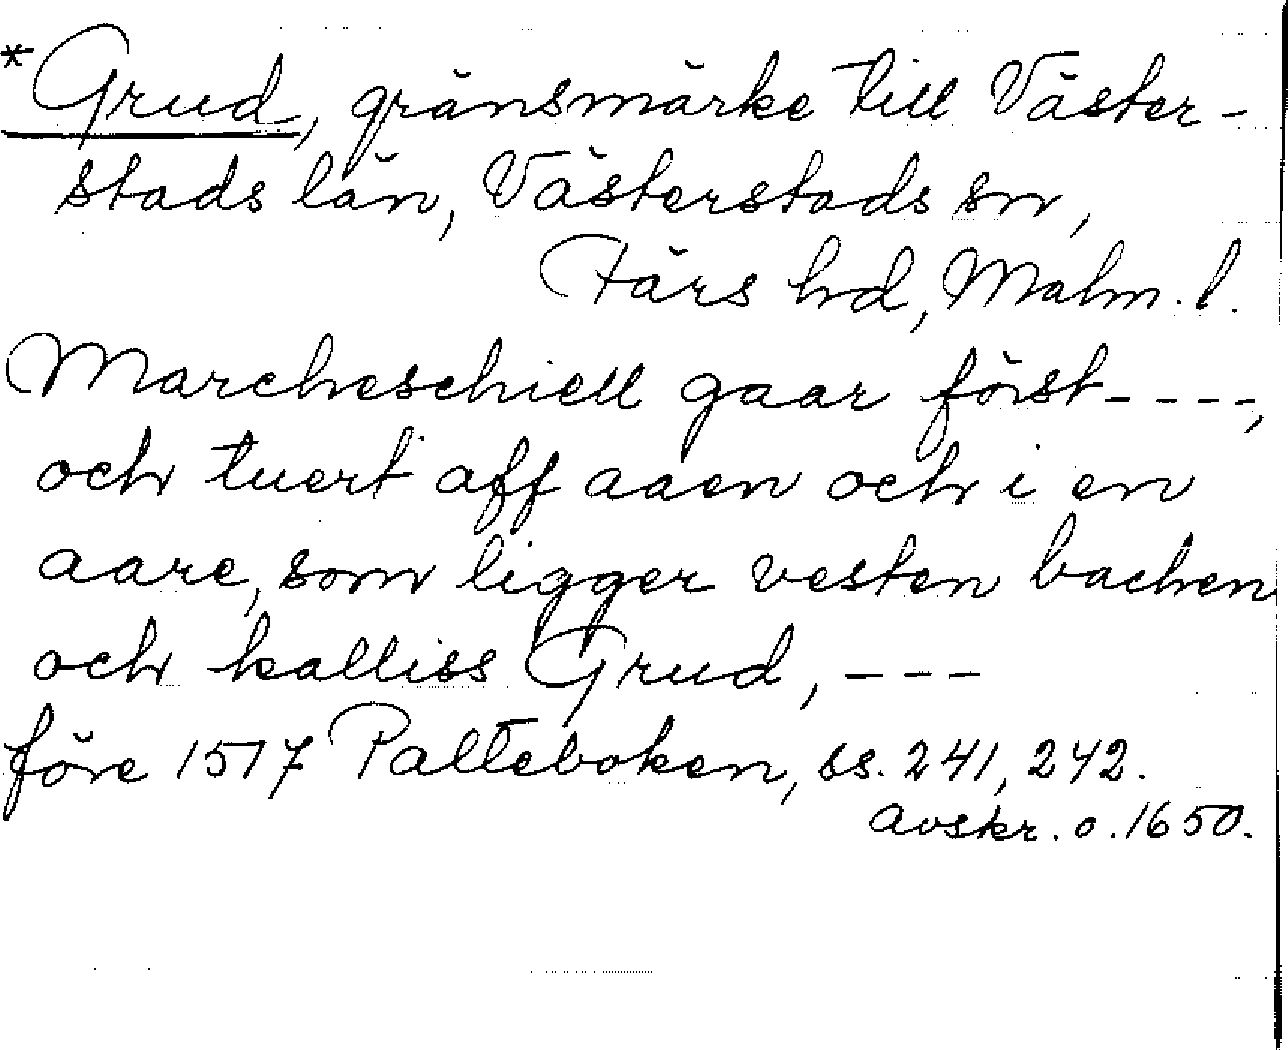 *Grud, gränsmärke till Väster-
stads län, Västerstads sn,
Färs hd, Malm. l.
Marcheschiell gaar först ----,
och tuert aff aaen och i en
aare, som ligger vesten bachen
och kalliss Grud, ---
före 1517 Palteboken, ss. 241, 242.
avskr. o. 1650.